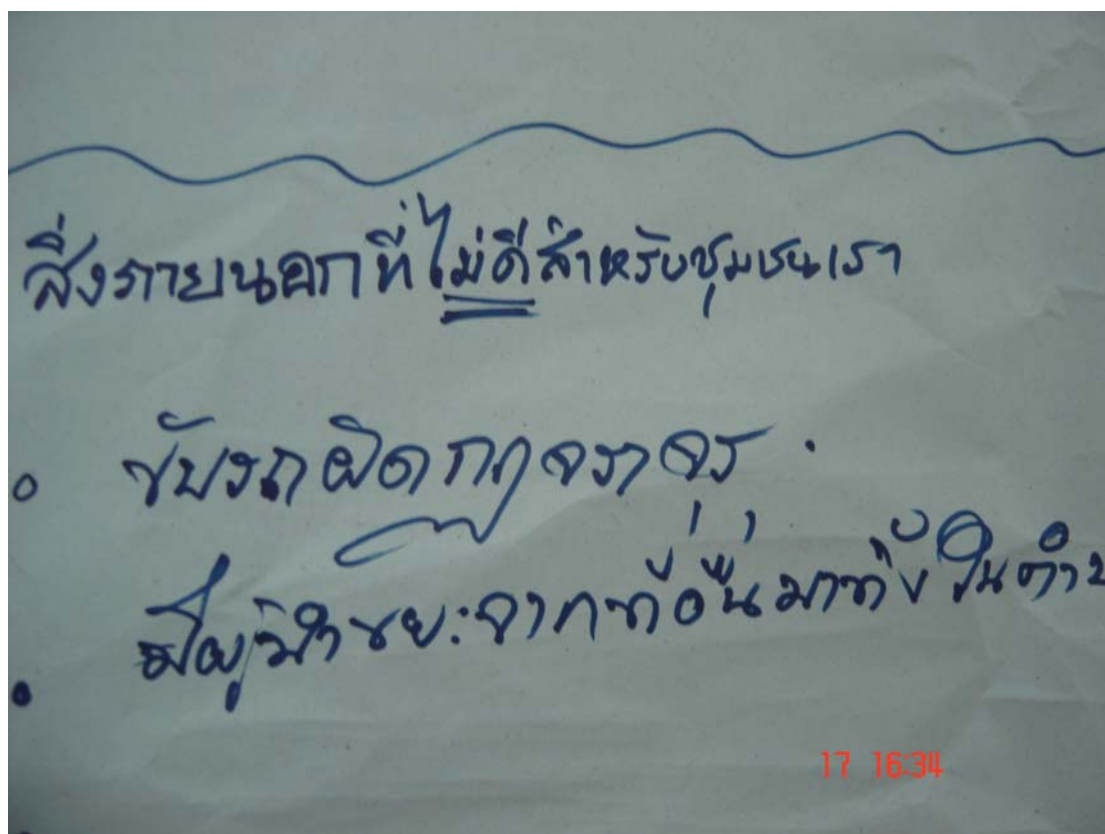 สิ่งภายนอกที่ไม่ดีสำหรับชุมชนเรา
ขับรถผิดกฎจราจร
มีผู้นำขยะจากที่อื่นมาทิ้งในตำบ
17 16:34